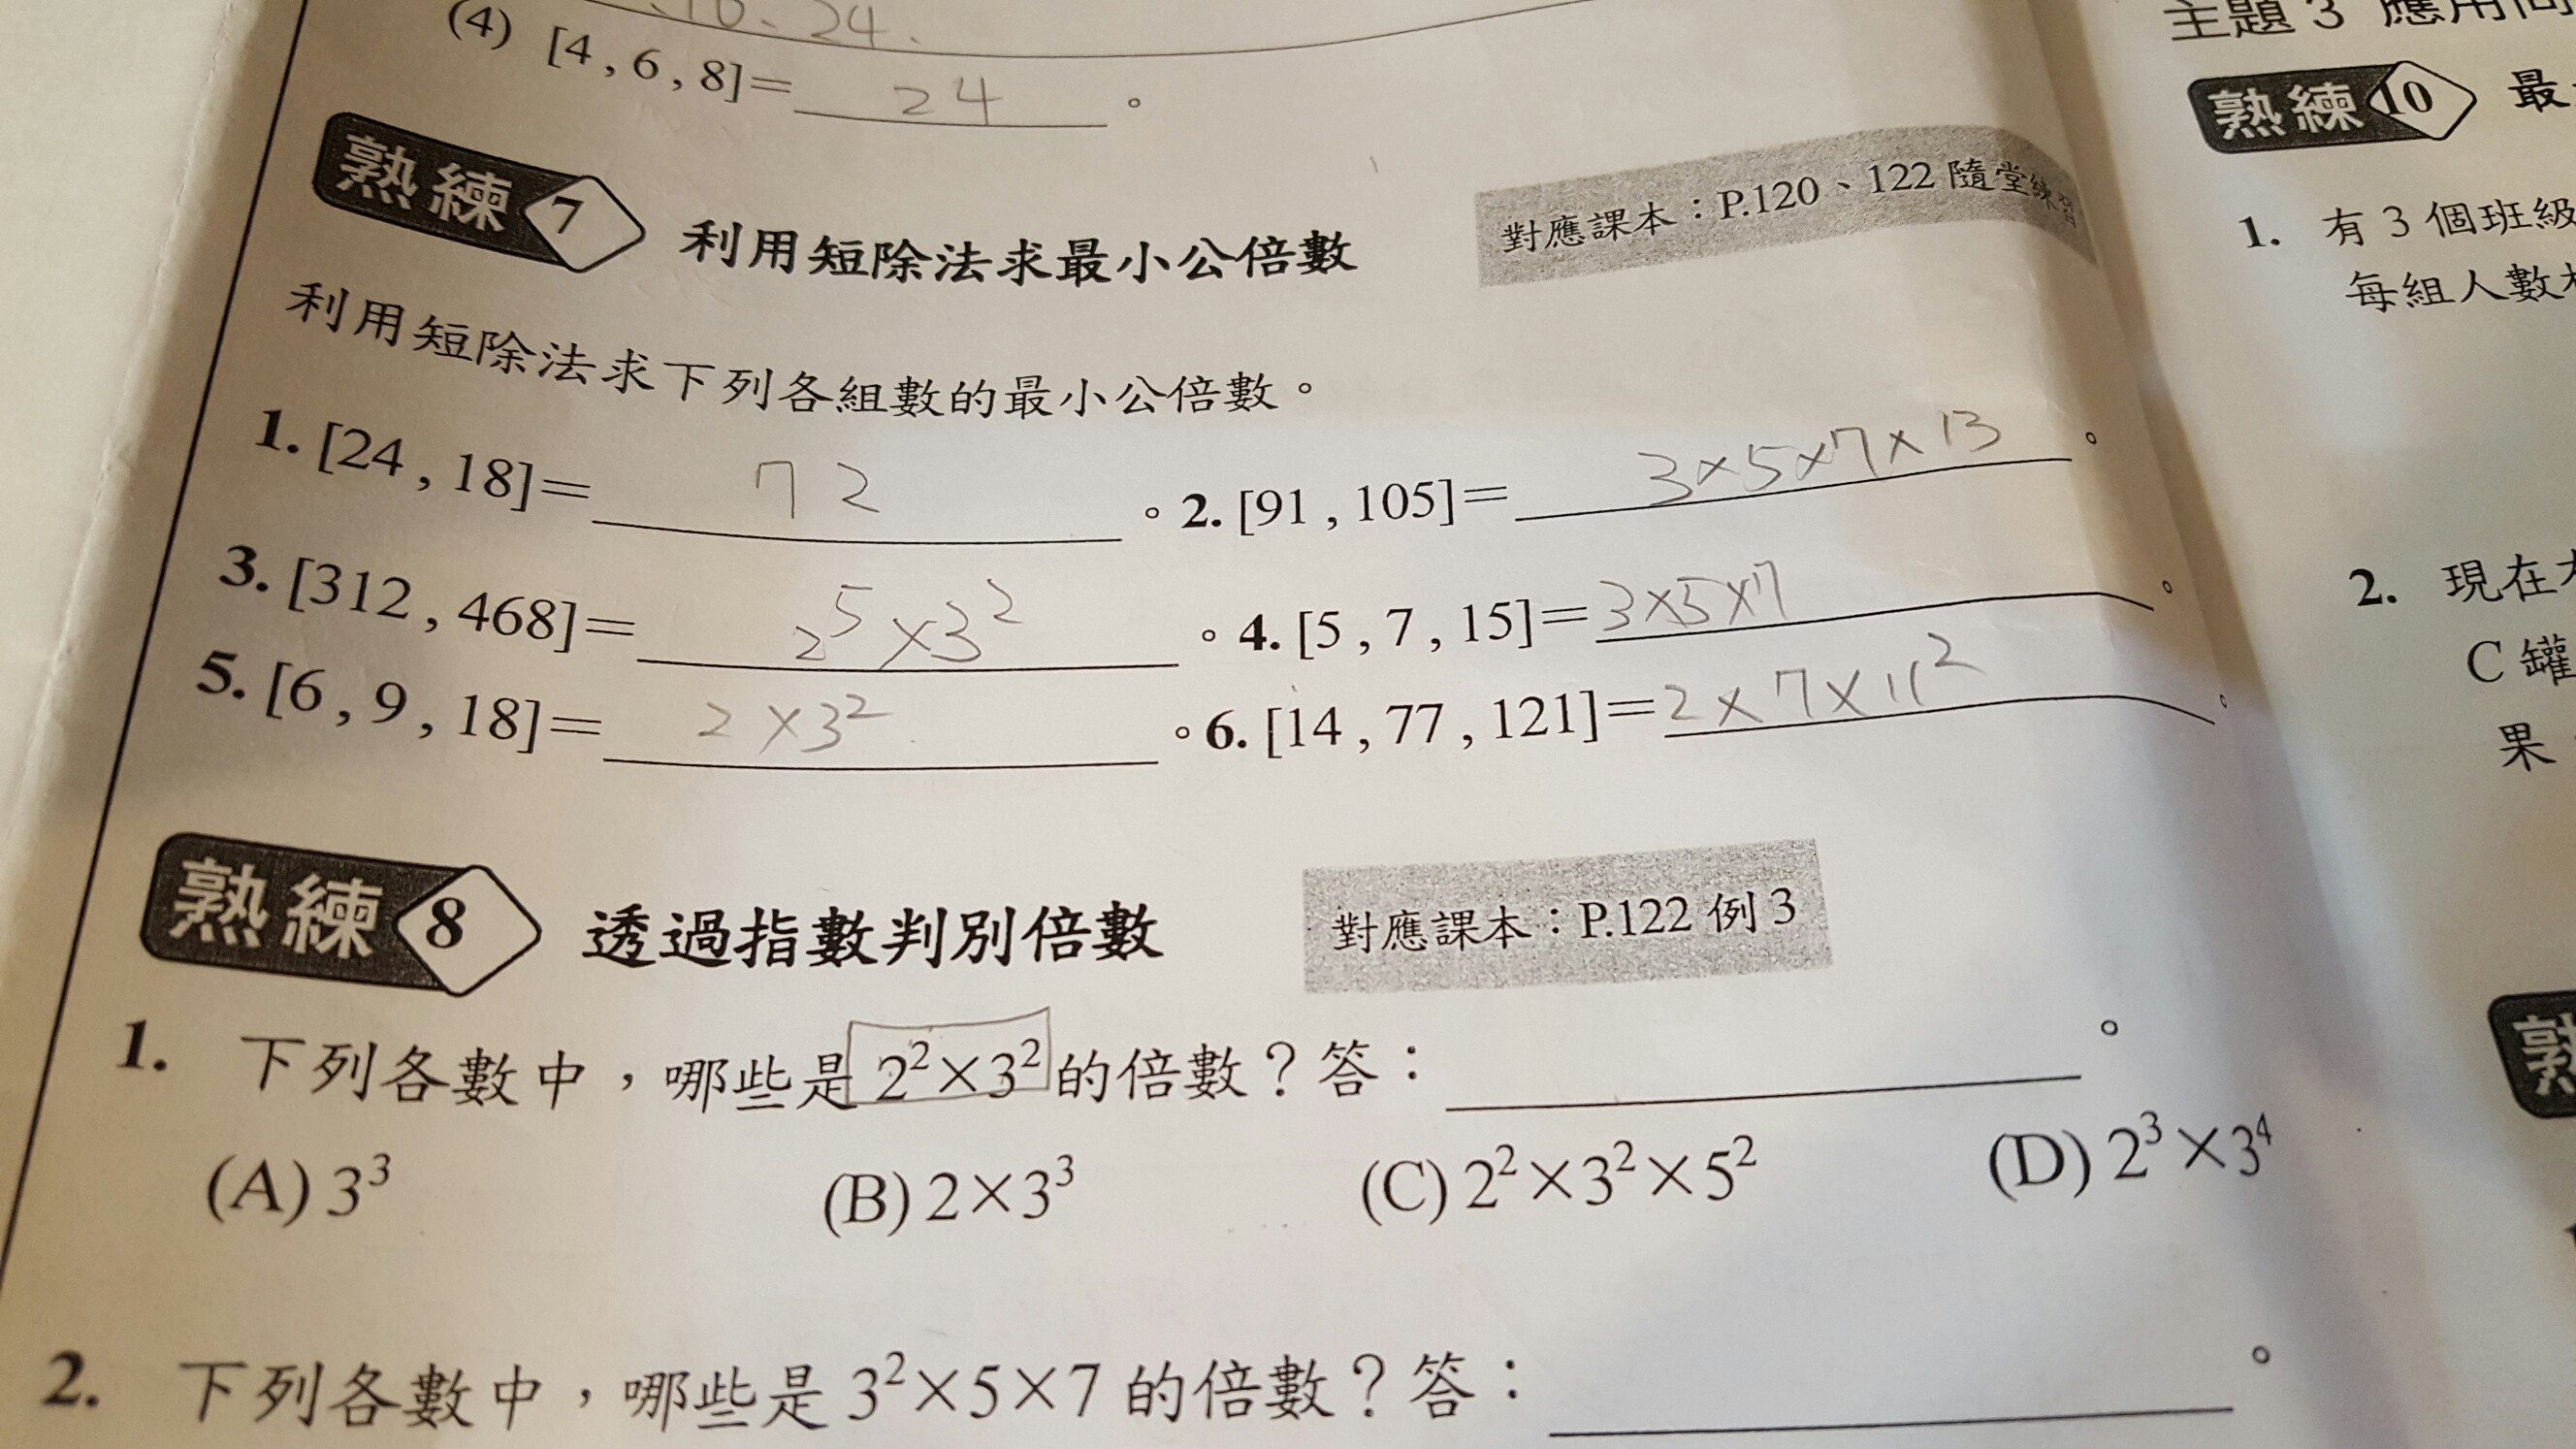 、10、24、
(4) [4 , 6 , 8]= 24 。
熟練 7 利用短除法求最小公倍數 對應課本：P.120、122 隨堂練習
利用短除法求下列各組數的最小公倍數。
1. [24 , 18]= 72 。2. [91 , 105]= 3×5×7×13 。
3. [312 , 468]= 2⁵×3² 。4. [5 , 7 , 15]= 3×5×7 。
5. [6 , 9 , 18]= 2×3² 。6. [14 , 77 , 121]= 2×7×11² 。
熟練 8 透過指數判別倍數 對應課本：P.122 例 3
1. 下列各數中，哪些是 2²×3² 的倍數？答： 。
(A) 3³ (B) 2×3³ (C) 2²×3²×5² (D) 2³×3⁴
2. 下列各數中，哪些是 3²×5×7 的倍數？答： 。
主題 3 應用
熟練 10 最
1. 有 3 個班級
每組人數
2. 現在
C 罐
果
熟